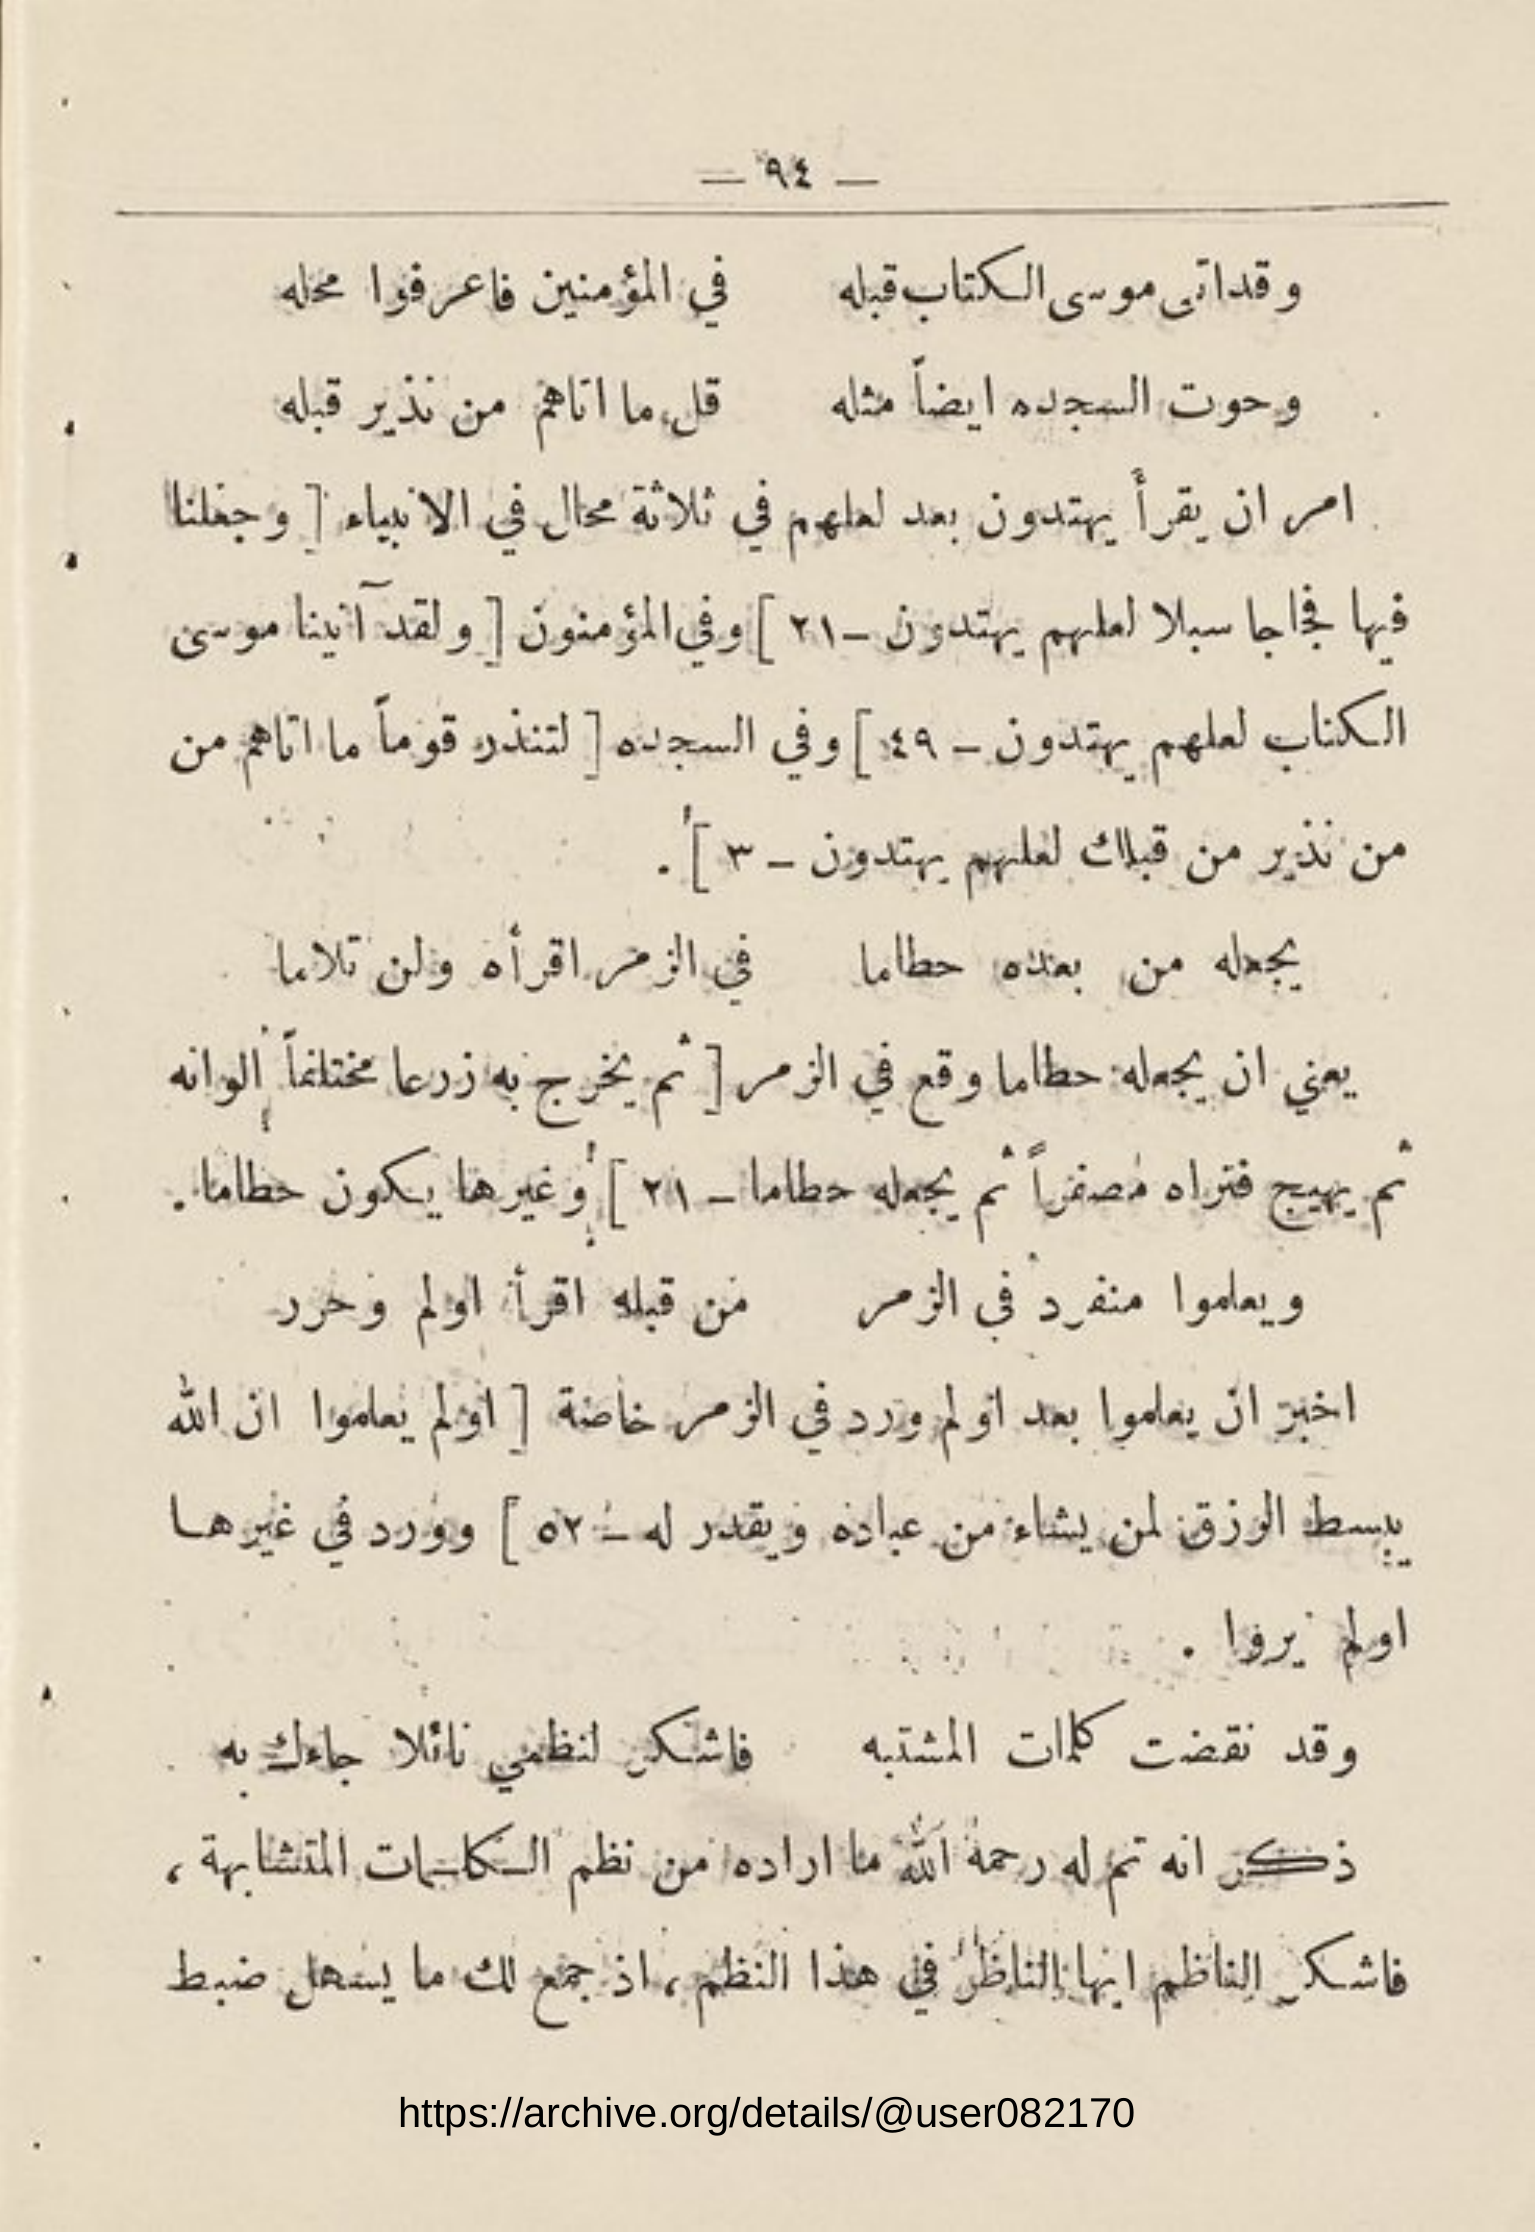 — ٩٤ —
وقد اتى موسى الكتاب قبله في المؤمنين فاعرفوا محله
وحوت السجده ايضاً مثله قل ما اتاهم من نذير قبله
امر ان يقرأ يهتدون بعد لعلهم في ثلاثة محال في الانبياء [ وجعلنا
فيها فجاجا سبلا لعلهم يهتدون – ٢١ ] وفي المؤمنون [ ولقد آتينا موسى
الكتاب لعلهم يهتدون – ٤٩ ] وفي السجده [ لتنذر قوماً ما اتاهم من
من نذير من قبلك لعلهم يهتدون – ٣ ] .
يجعله من بعده حطاما في الزمر اقرأه ولن تلاما
يعني ان يجعله حطاما وقع في الزمر [ ثم يخرج به زرعا مختلفاً الوانه
ثم يهيج فتراه مصفراً ثم يجعله حطاما – ٢١ ] وغيرها يكون حطاما .
ويعلموا منفرد في الزمر من قبله اقرأ اولم وحرر
اخبر ان يعلموا بعد اولم ورد في الزمر خاصة [ اولم يعلموا ان الله
يبسط الرزق لمن يشاء من عباده ويقدر له – ٥٢ ] وورد في غيرها
اولم يروا .
وقد نقضت كلمات المشتبه فاشكر لنظمي نائلا جاءك به
ذكر انه تم له رحمة الله ما اراده من نظم الكلمات المتشابهة ،
فاشكر الناظم ايها الناظر في هذا النظم ، اذ جمع لك ما يسهل ضبط
https://archive.org/details/@user082170